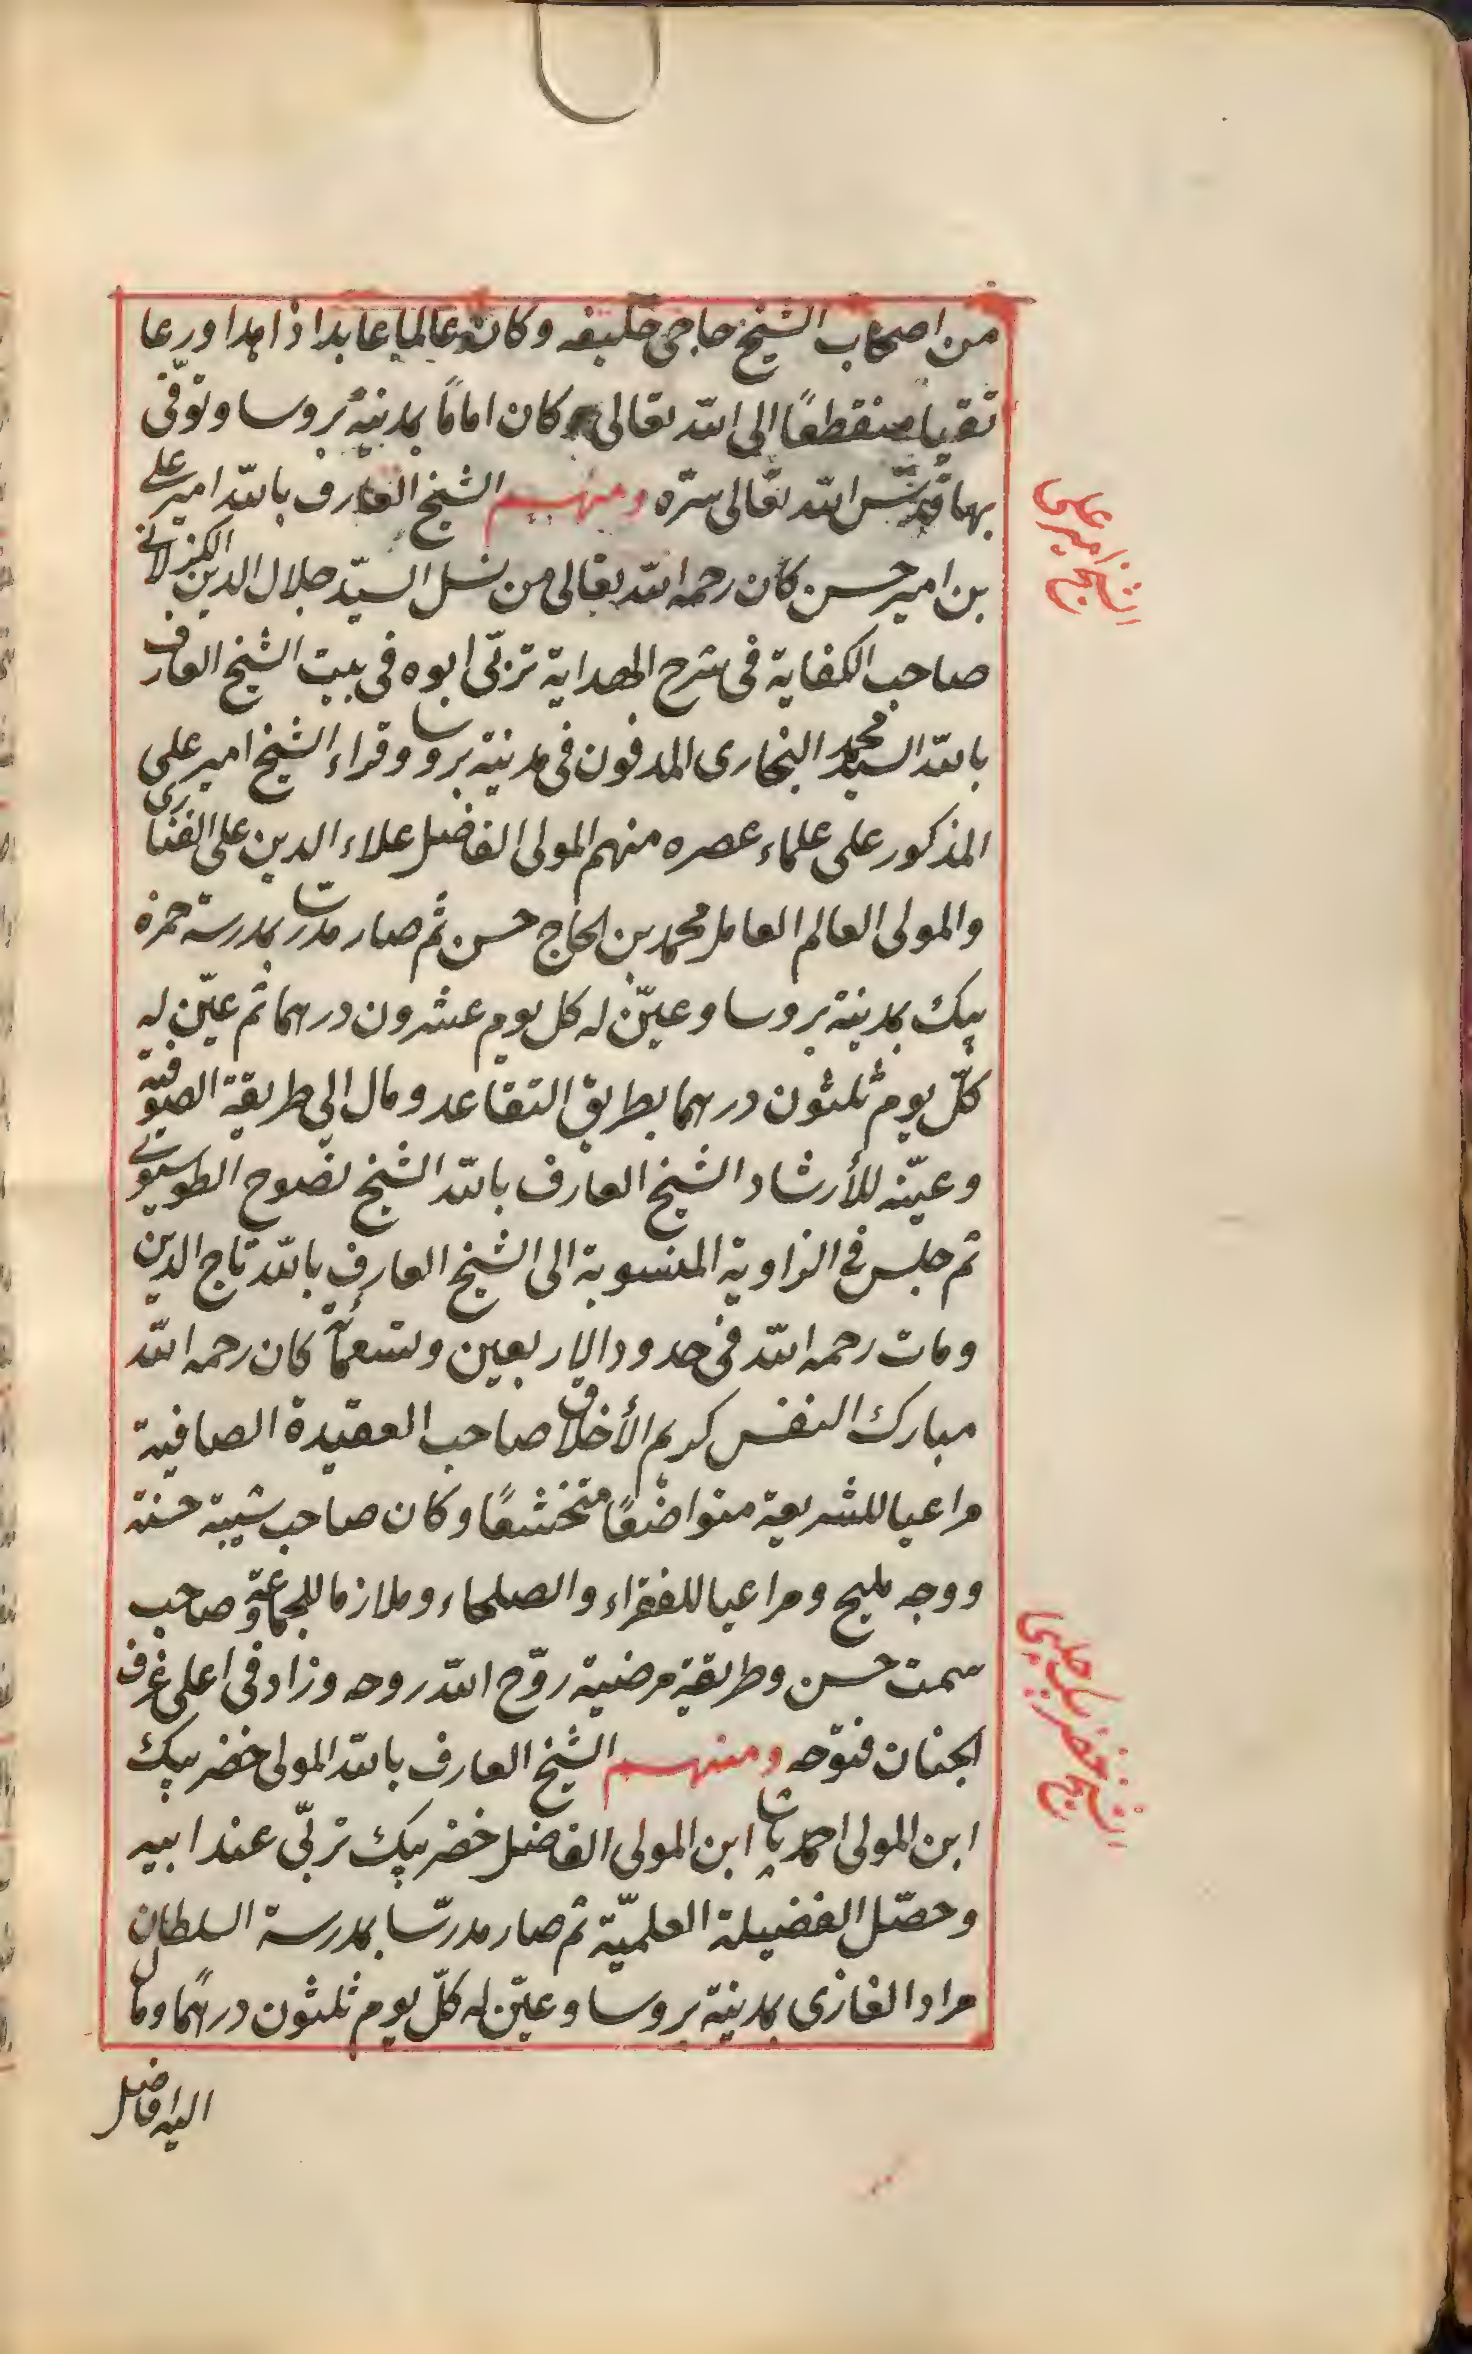 من اصحاب الشيخ حاجى خليفه وكان عالما عابدا زاهدا ورعا
تقيا منقطعًا الى الله تعالى وكان امامًا بمدينة بروسا وتوفّى
بها قدّس الله تعالى سرّه ومنهم الشيخ العارف بالله امير على
بن امير حسن كان رحمه الله تعالى من نسل السيّد جلال الدين الكرلانى
صاحب الكفاية فى شرح الهداية تربّى ابوه فى بيت الشيخ العارف
بالله السيد محمد البخارى المدفون فى مدينة بروسا وقراء الشيخ امير على
المذكور على علماء عصره منهم المولى الفاضل علاء الدين على الفنارى
والمولى العالم العامل محمد بن الحاج حسن ثم صار مدرسا بمدرسة حمزه
بيك بمدينة بروسا وعيّن له كل يوم عشرون درهما ثم عيّن له
كلّ يوم ثلثون درهما بطريق التقاعد ومال الى طريقة الصوفية
وعيّنه للأرشاد الشيخ العارف بالله الشيخ نصوح الطوسيوى
ثم جلس فى الزاوية المنسوبة الى الشيخ العارف بالله تاج الدين
ومات رحمه الله فى حدود الاربعين وتسعمائة كان رحمه الله
مبارك النفس كريم الأخلاق صاحب العقيدة الصافية
مراعيا للشريعة متواضعًا متخشعًا وكان صاحب شيبة حسنة
ووجه مليح ومراعيا للفقراء والصلحاء وملازما للجماعة وصاحب
سمت حسن وطريقة مرضية روّح الله روحه وزاد فى اعلى غرف
الجنان فتوحه ومنهم الشيخ العارف بالله المولى خضر بيك
ابن المولى احمد پاشا ابن المولى الفاضل خضر بيك تربّى عند ابيه
وحصّل الفضيلة العلميّة ثم صار مدرّسا بمدرسة السلطان
مراد الغازى بمدينة بروسا وعيّن له كلّ يوم ثلثون درهمًا وما
اليه افاضل
الشيخ امير على
الشيخ خضر بيك چلبى